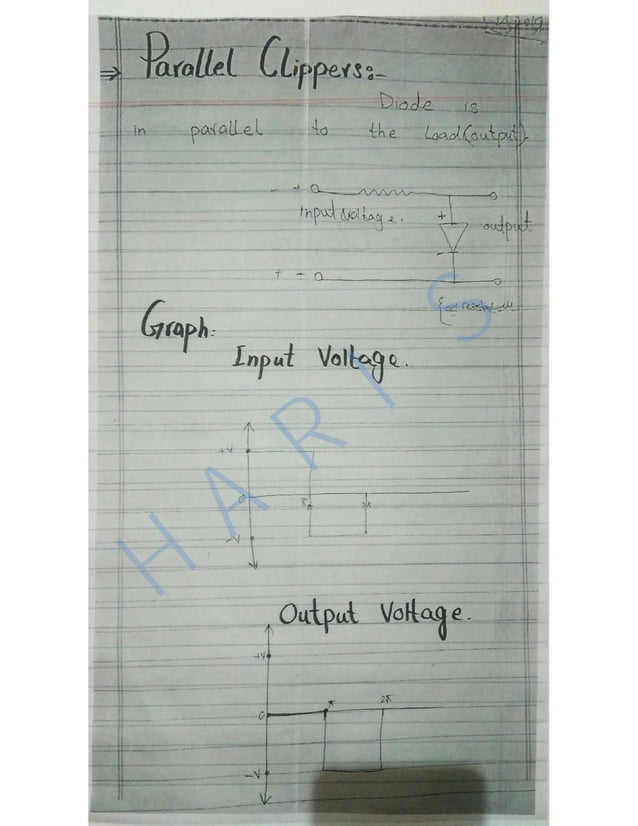 ⇒ Parallel Clippers:-
Diode is
in parallel to the Load(output)
- +
Input voltage.
+
output
-
+ -
Graph:
Input Voltage.
+V
0
π
2π
-V
HARIS
Output Voltage.
+V
π
2π
0
-V